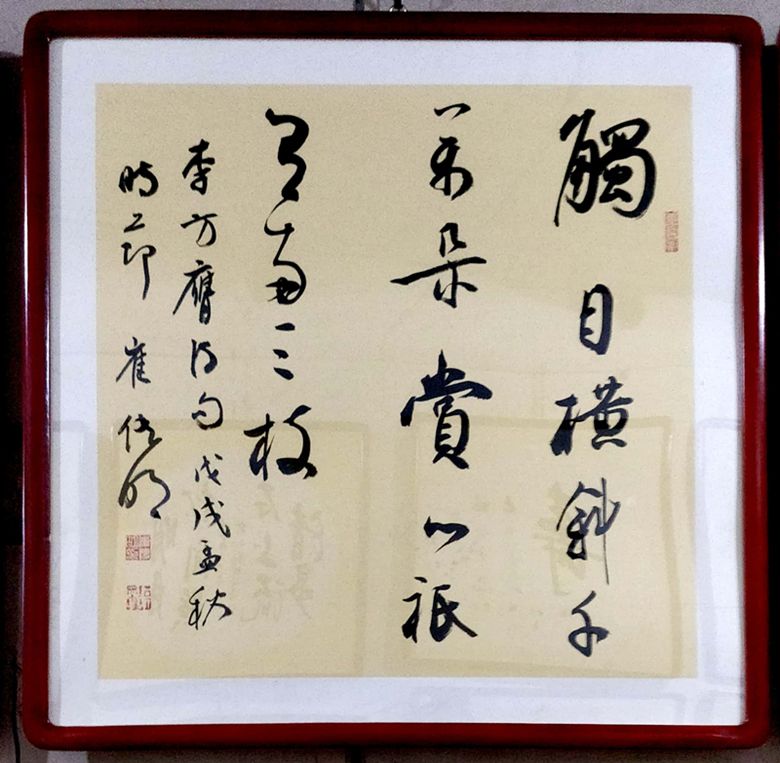 觸目橫斜千
萬朵賞心祇
有兩三枝
李方膺詩句戊戌孟秋
時節崔明